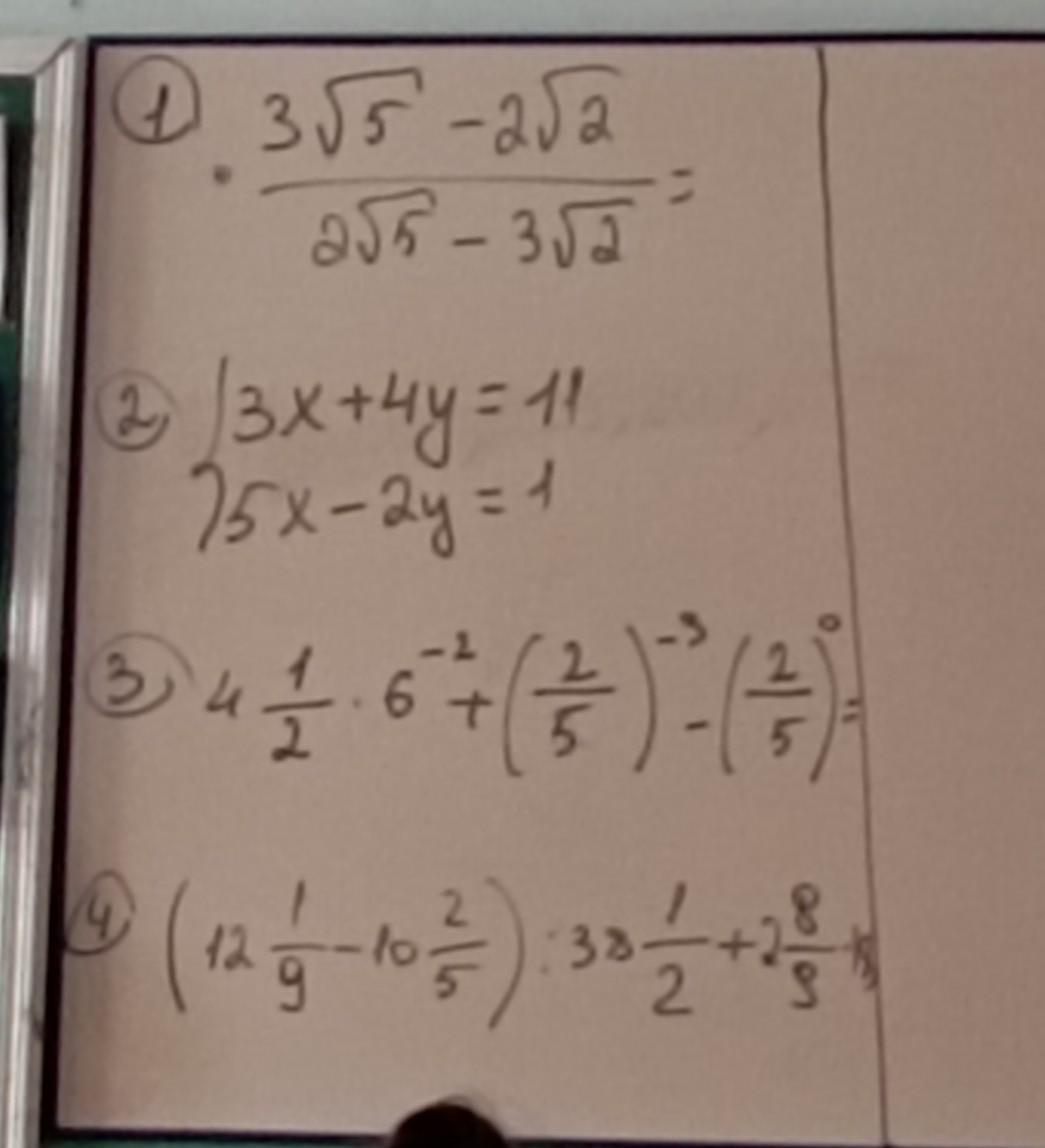 ① (3√5 - 2√2)/(2√5 - 3√2) =
② 3x + 4y = 11
5x - 2y = 1
③ 4 1/2 · 6^(-2) + (2/5)^(-3) - (2/5)^0 =
④ (12 1/9 - 10 2/5) : 38 1/2 + 2 8/9